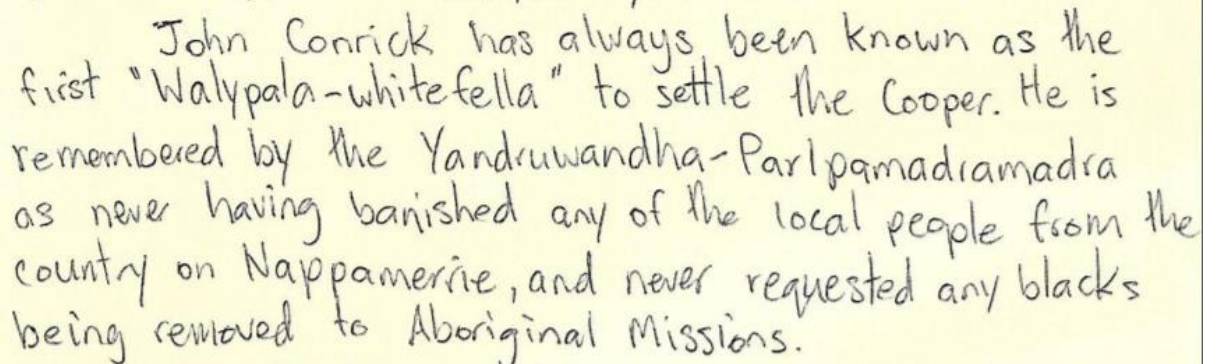 John Conrick has always been known as the
first "Walypala-whitefella" to settle the Cooper. He is
remembered by the Yandruwandha-Parlpamadramadra
as never having banished any of the local people from the
country on Nappamerrie, and never requested any blacks
being removed to Aboriginal Missions.